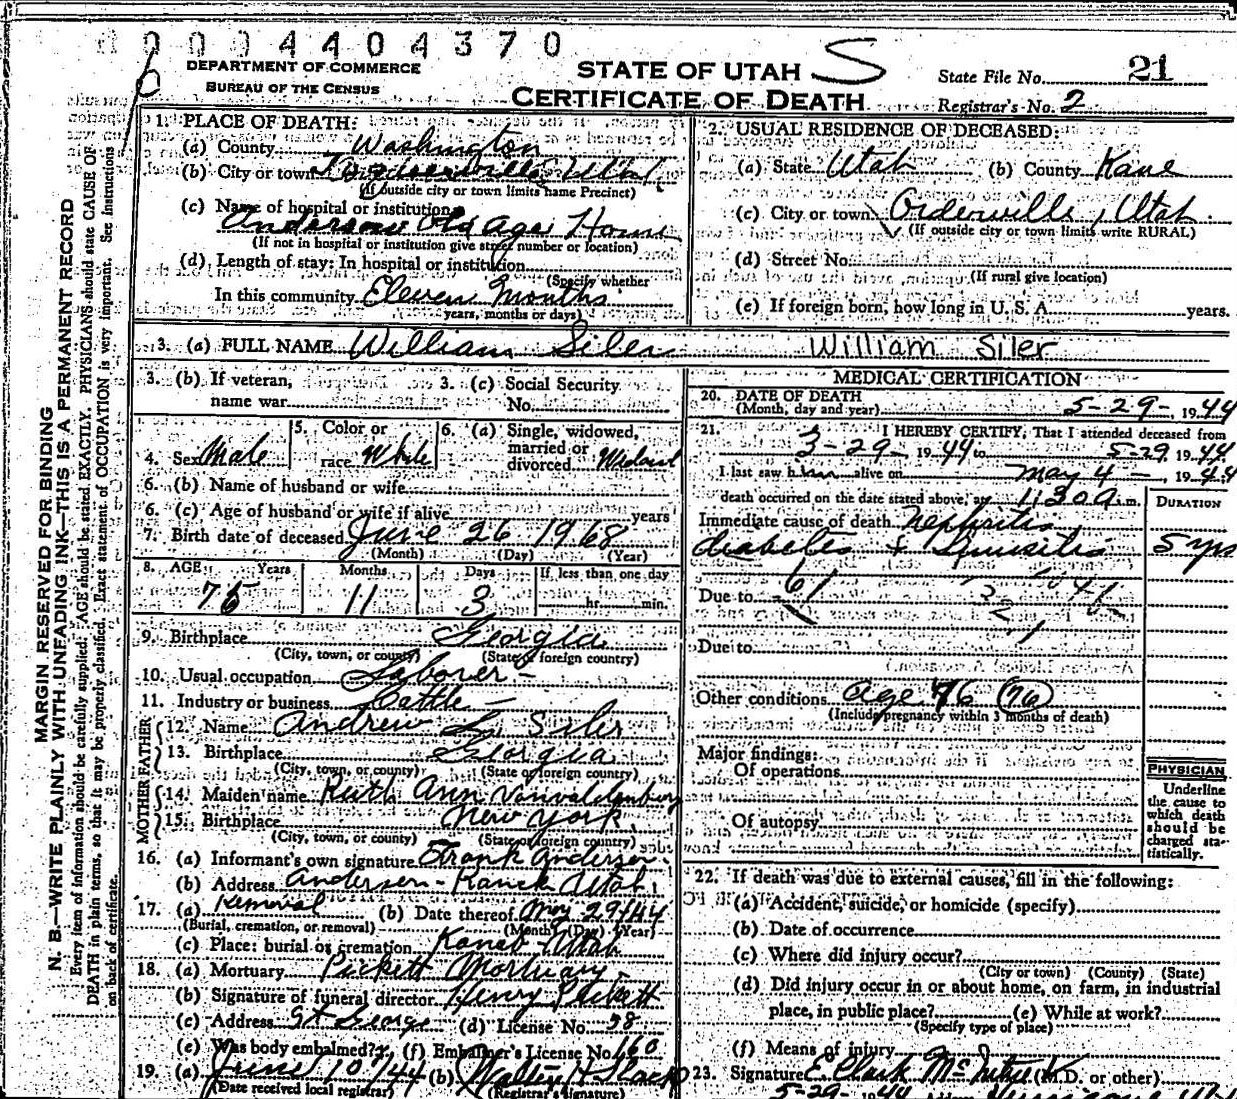 0 0 0 4 4 0 4 3 7 0
DEPARTMENT OF COMMERCE
BUREAU OF THE CENSUS
STATE OF UTAH S
CERTIFICATE OF DEATH
State File No. 21
Registrar's No. 2
MARGIN RESERVED FOR BINDING
N. B.—WRITE PLAINLY WITH UNFADING INK—THIS IS A PERMANENT RECORD
Every item of information should be carefully supplied. AGE should be stated EXACTLY. PHYSICIANS should state CAUSE OF
DEATH in plain terms, so that it may be properly classified. Exact statement of OCCUPATION is very important. See instructions
on back of certificate.
1. PLACE OF DEATH:
(a) County Washington
(b) City or town Utah
(If outside city or town limits name Precinct)
(c) Name of hospital or institution
Anderson Old Age Home
(If not in hospital or institution give street number or location)
(d) Length of stay: In hospital or institution
(Specify whether
In this community Eleven Months
years, months or days)
2. USUAL RESIDENCE OF DECEASED:
(a) State Utah (b) County Kane
(c) City or town Orderville, Utah
(If outside city or town limits write RURAL)
(d) Street No.
(If rural give location)
(e) If foreign born, how long in U. S. A. years.
3. (a) FULL NAME William Siler William Siler
3. (b) If veteran, name war
3. (c) Social Security No.
4. Sex Male
5. Color or race White
6. (a) Single, widowed, married or divorced Widowed
6. (b) Name of husband or wife
6. (c) Age of husband or wife if alive years
7. Birth date of deceased June 26 1968
(Month) (Day) (Year)
8. AGE Years Months Days If less than one day
75 11 3 hr. min.
9. Birthplace Georgia
(City, town, or county) (State or foreign country)
10. Usual occupation Laborer -
11. Industry or business Cattle -
FATHER
12. Name Andrew L. Siler
13. Birthplace Georgia
(City, town, or county) (State or foreign country)
MOTHER
14. Maiden name Ruth Ann Vanvaldenburg
15. Birthplace New York
(City, town, or county) (State or foreign country)
16. (a) Informant's own signature Frank Anderson
(b) Address Anderson - Ranch Utah
17. (a) Removal (b) Date thereof May 29 / 44
(Burial, cremation, or removal) (Month) (Day) (Year)
(c) Place: burial or cremation Kanab - Utah
18. (a) Mortuary Pickett Mortuary -
(b) Signature of funeral director Henry Pickett
(c) Address St George (d) License No. 38
(e) Was body embalmed? (f) Embalmer's License No. 160
19. (a) June 10/44 (b) Walter H Slack
(Date received local registrar) (Registrar's signature)
MEDICAL CERTIFICATION
20. DATE OF DEATH
(Month, day and year) 5-29-, 1944
21. I HEREBY CERTIFY, That I attended deceased from
3-29-1944 to 5-29, 1944
I last saw him alive on May 4 -, 1944
death occurred on the date stated above, at 1130 a.m. DURATION
Immediate cause of death Nephritis
diabetes + Sinusitis 5 yrs
Due to 61
Due to
Other conditions age 76 (76)
(Include pregnancy within 3 months of death)
Major findings:
Of operations
Of autopsy
PHYSICIAN
Underline
the cause to
which death
should be
charged sta-
tistically.
22. If death was due to external causes, fill in the following:
(a) Accident, suicide, or homicide (specify)
(b) Date of occurrence
(c) Where did injury occur?
(City or town) (County) (State)
(d) Did injury occur in or about home, on farm, in industrial
place, in public place? (e) While at work?
(Specify type of place)
(f) Means of injury
23. Signature E. Clark McIntire (M.D. or other)
5-29- 1944 Hurricane